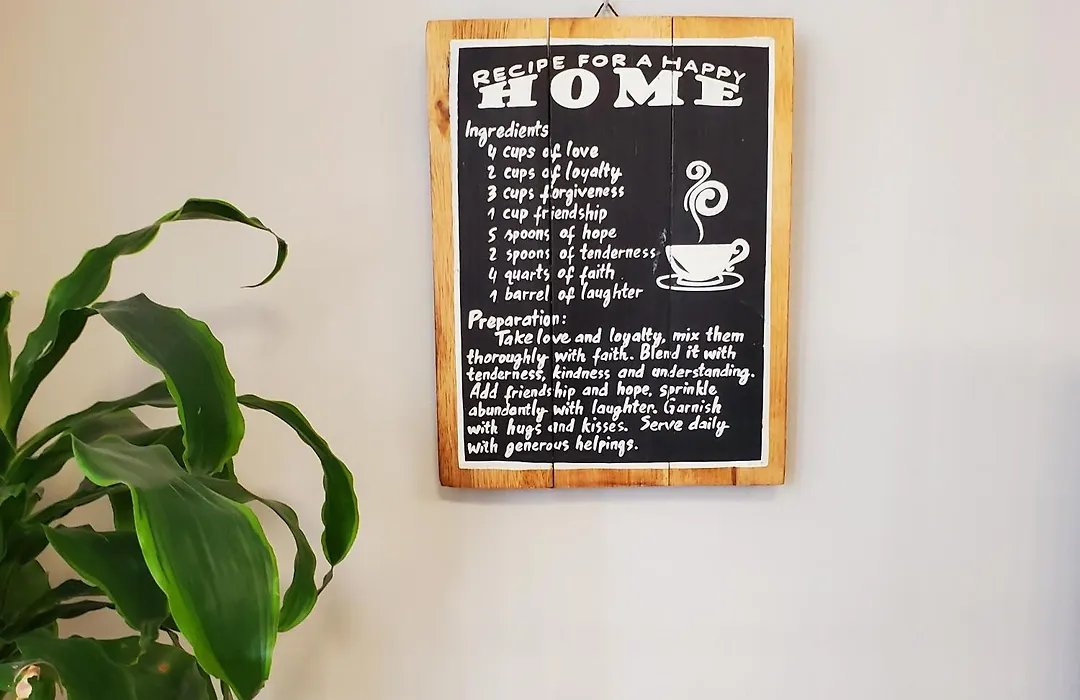 RECIPE FOR A HAPPY
HOME
Ingredients
4 cups of love
2 cups of loyalty
3 cups forgiveness
1 cup friendship
5 spoons of hope
2 spoons of tenderness
4 quarts of faith
1 barrel of laughter
Preparation:
Take love and loyalty, mix them
thoroughly with faith. Blend it with
tenderness, kindness and understanding.
Add friendship and hope, sprinkle
abundantly with laughter. Garnish
with hugs and kisses. Serve daily
with generous helpings.